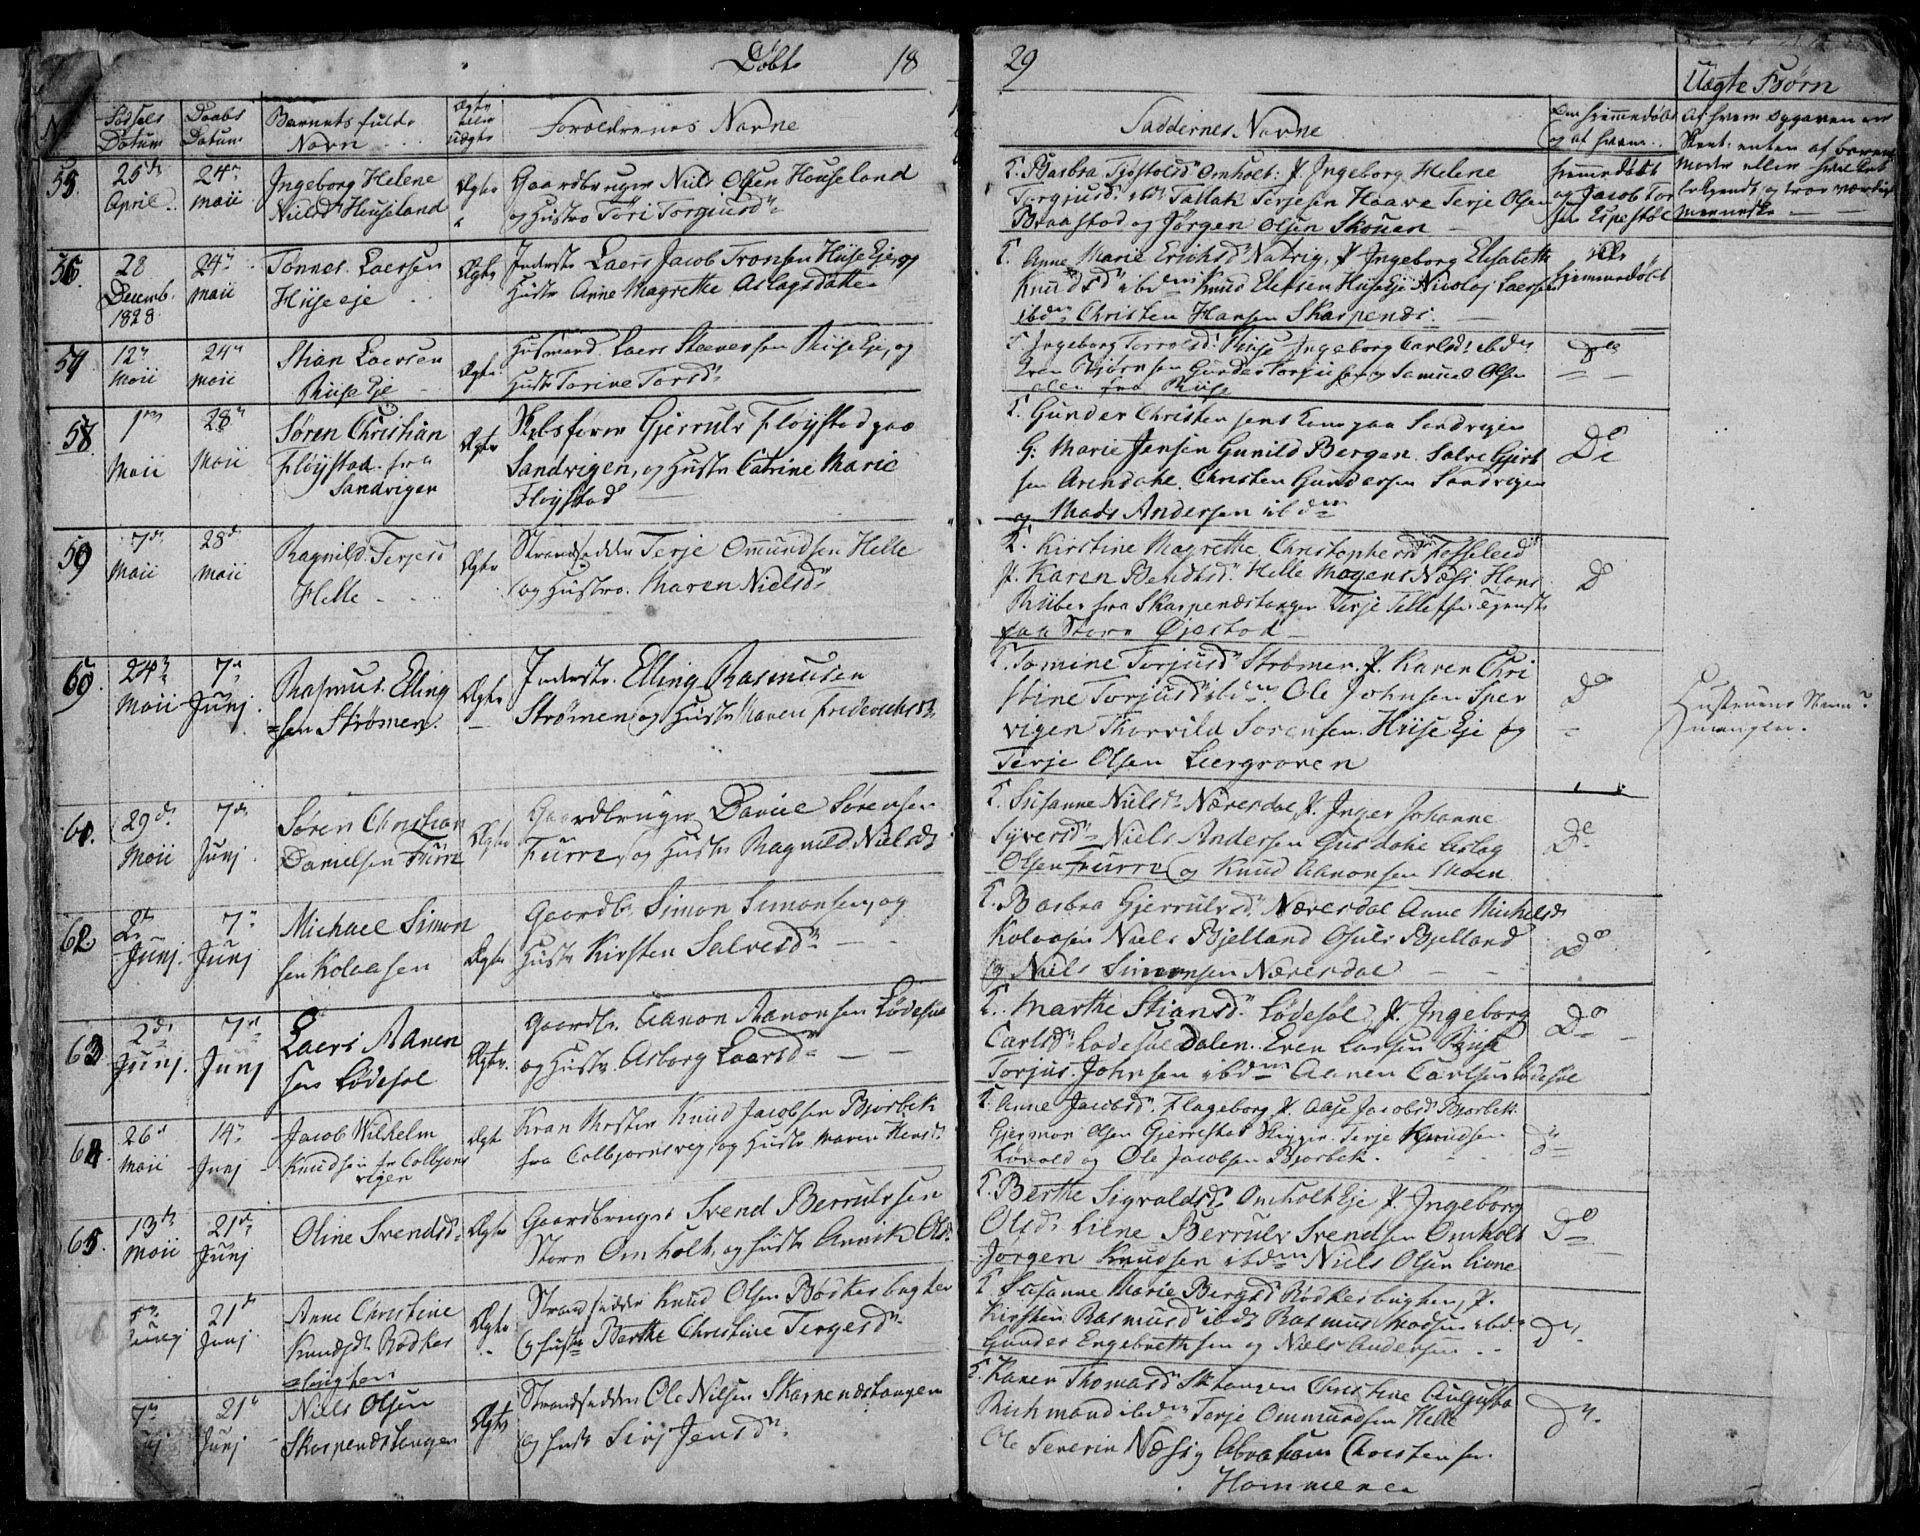 Døbte 18
29
Uægte Børn
Fødsels Datum
Daabs Datum
Barnets fulde Navn
Ægte eller Uægte
Forældrenes Navne
Faddernes Navne
og af hvem
Af hvem Opgaven er
enten af
Moder eller
Menneske
55.
25de April
24de Maii
Ingeborg Helene
Nielsd. Houseland
Ægte
Gaardbruger Niels Olsen Houseland
og Hustro Tori Torgiusd.
T. Barbra Omholt: P. Ingeborg Helene
Torgiusd. Tallak Terjesen Haave Terje Olsen
Braastad og Jørgen Olsen Skouen
hjemmedøbt
og Jacob Tor
sen Espestøl
56.
28 Decemb. 1828
24de Maii
Tønnes Laersen
Hiiseeje
Ægte
Inderste Laers Jacob Tronsen HiiseEje, og
Hustr. Anne Magrette Aslagsdatter
T. Anne Marie Erichsd. Natvig, P. Ingeborg Elisabeth
Knudsd. ibdm Knud Ellefsen HiiseEje Nicolaj Laersen
ibdm Christen Hansen Skarpenæs.
hjemmedøbt
57
12te Maii
24de Maii
Stian Laersen
RiiseEje
Ægte.
Husmand Laers Steenersen RiiseEje, og
Hustr. Torine Torsd.
T. Ingeborg Hiise Ingeborg Carlsd. ibdm
Even Biørnsen Gunder og Samuel Olsen
fra Riise
Do
58.
1ste Maii
28de Maii
Søren Christian
Fløystad fra
Sandvigen
Ægte
Gjerrulv Fløystad paa
Sandvigen, og Hustr. Catrine Marie
Fløystad
T. Gunder Christensens Kone paa Sandvigen
G: Marie Jensen Gunild Bergen. Salve Gjert
sen Arendahl. Christen Gundersen Sandvigen
og Mads Andersen ibdm
Do
59
7de Maii
28de Maii
Ragnild Terjesd
Helle
Ægte
Strandsidder Terje Omundsen Helle
og Hustro. Maren Nielsd.
T. Kirstine Magrethe Christophersd.
P. Karen Bendtsd. Helle Mogens Næss Hans
fra Skarpenæstangen Terje Tellefsen
paa Store Øjestad
D
60.
24de Maii
7de Junj.
Rasmus Elling
=sen Strømen.
Ægte
Inderste. Elling Rasmusen
Strømen og Hustr. Maren Frederichsd.
T. Tomine Torjusd. Strømen. P. Karen Chri
stine Torjusd. ibdm Ole Johnsen Sper
vigen Thorvild Sørensen. HiiseEje og
Terje Olsen Leergraven
Do
Hustruens Navn?
mangler.
61.
29de Maii
7de Junj.
Søren Christian
Danielsen Furre
Ægte
Gaardbruger Daniel Sørensen
Furre, og Hustr. Ragnild Nielsd.
T. Susanne Nielsd. Næresdal P. Inger Johanne
Syversd. Niels Andersen Gusdahl Aslag
Olsen Furre og Knud Aanonsen Moen
Do
62
2de Junj.
7de Junj
Michael Simon
sen Kolaasen
Ægte
Gaardbr. Simon Simonsen, og
Hustr. Kirsten Salvesd.
T. Barbra Gjerrulvsd. Næresdal Anne Michelsd.
Kolaasen Niels Bjelland Bjelland
og Niels Simonsen Næresdal
Do
63
2de Junj.
7de Junj
Laers Aanen
sen Lødesøl
Ægte.
Gaardbr. Aanon Aanonsen Lødesøl
og Hustr. Asborg Laersd.
T. Marthe Stiansd. Lødesøl, P. Ingeborg
Carlsd. Lødesøl Dalen. Even Larsen Riise
Torjus Johnsen ibdm Aanen Carlsen Lødesøl
Do
64
26de Maii
14de Junj
Jacob Wilhelm
Knudsen fr. Colbjørns
vigen
Ægte
Knud Jacobsen Bjorbek
fra Colbjørnsvig, og Hustr. Maren
T. Anne Jacobsd. Flageborg P. Aase Jacobsd. Bjorbek
Gjermon Olsen Gjerrestad Terje Knudsen
Løvold og Ole Jacobsen Bjorbek.
Do
65.
13de Maii
21de Junj
Oline Svendsd.
Ægte
Gaardbruger Svend Berrulvsen
Store Omholt, og Hustr. Annik Olsd.
T. Berthe Sigvaldsd. Omholt Eje P. Ingeborg
Olsd. Liene Berrulv Svendsen Omholt
Jørgen Knudsen ibdm Niels Olsen Liene
Do
66
21de Junj
Anne Christine
Knudsdt Bødker
=bugten
Ægte
Strandsidder Knud Olsen Bødkerbugten
og Hustr. Berthe Christine Tergesd.
T. Susanne Marie Bødkerbugten, P.
Kirsten Rasmusd. ibd. Rasmus Madsen ibd.
Gunder Engebrethsen og Niels Andersen
Do
7de
21de Junj
Niels Olsen
Skarpenæstangen
Ægte
Strandsidder Ole Nielsen Skarpenæstangen
og Hustr. Sirj Jensd.
T. Karen Thomasd. Sktangen Christine Augusta
Richmand ibdm Terje Ommundsen Helle
Ole Severin Næsig Abraham Christensen
Hammeren
Do